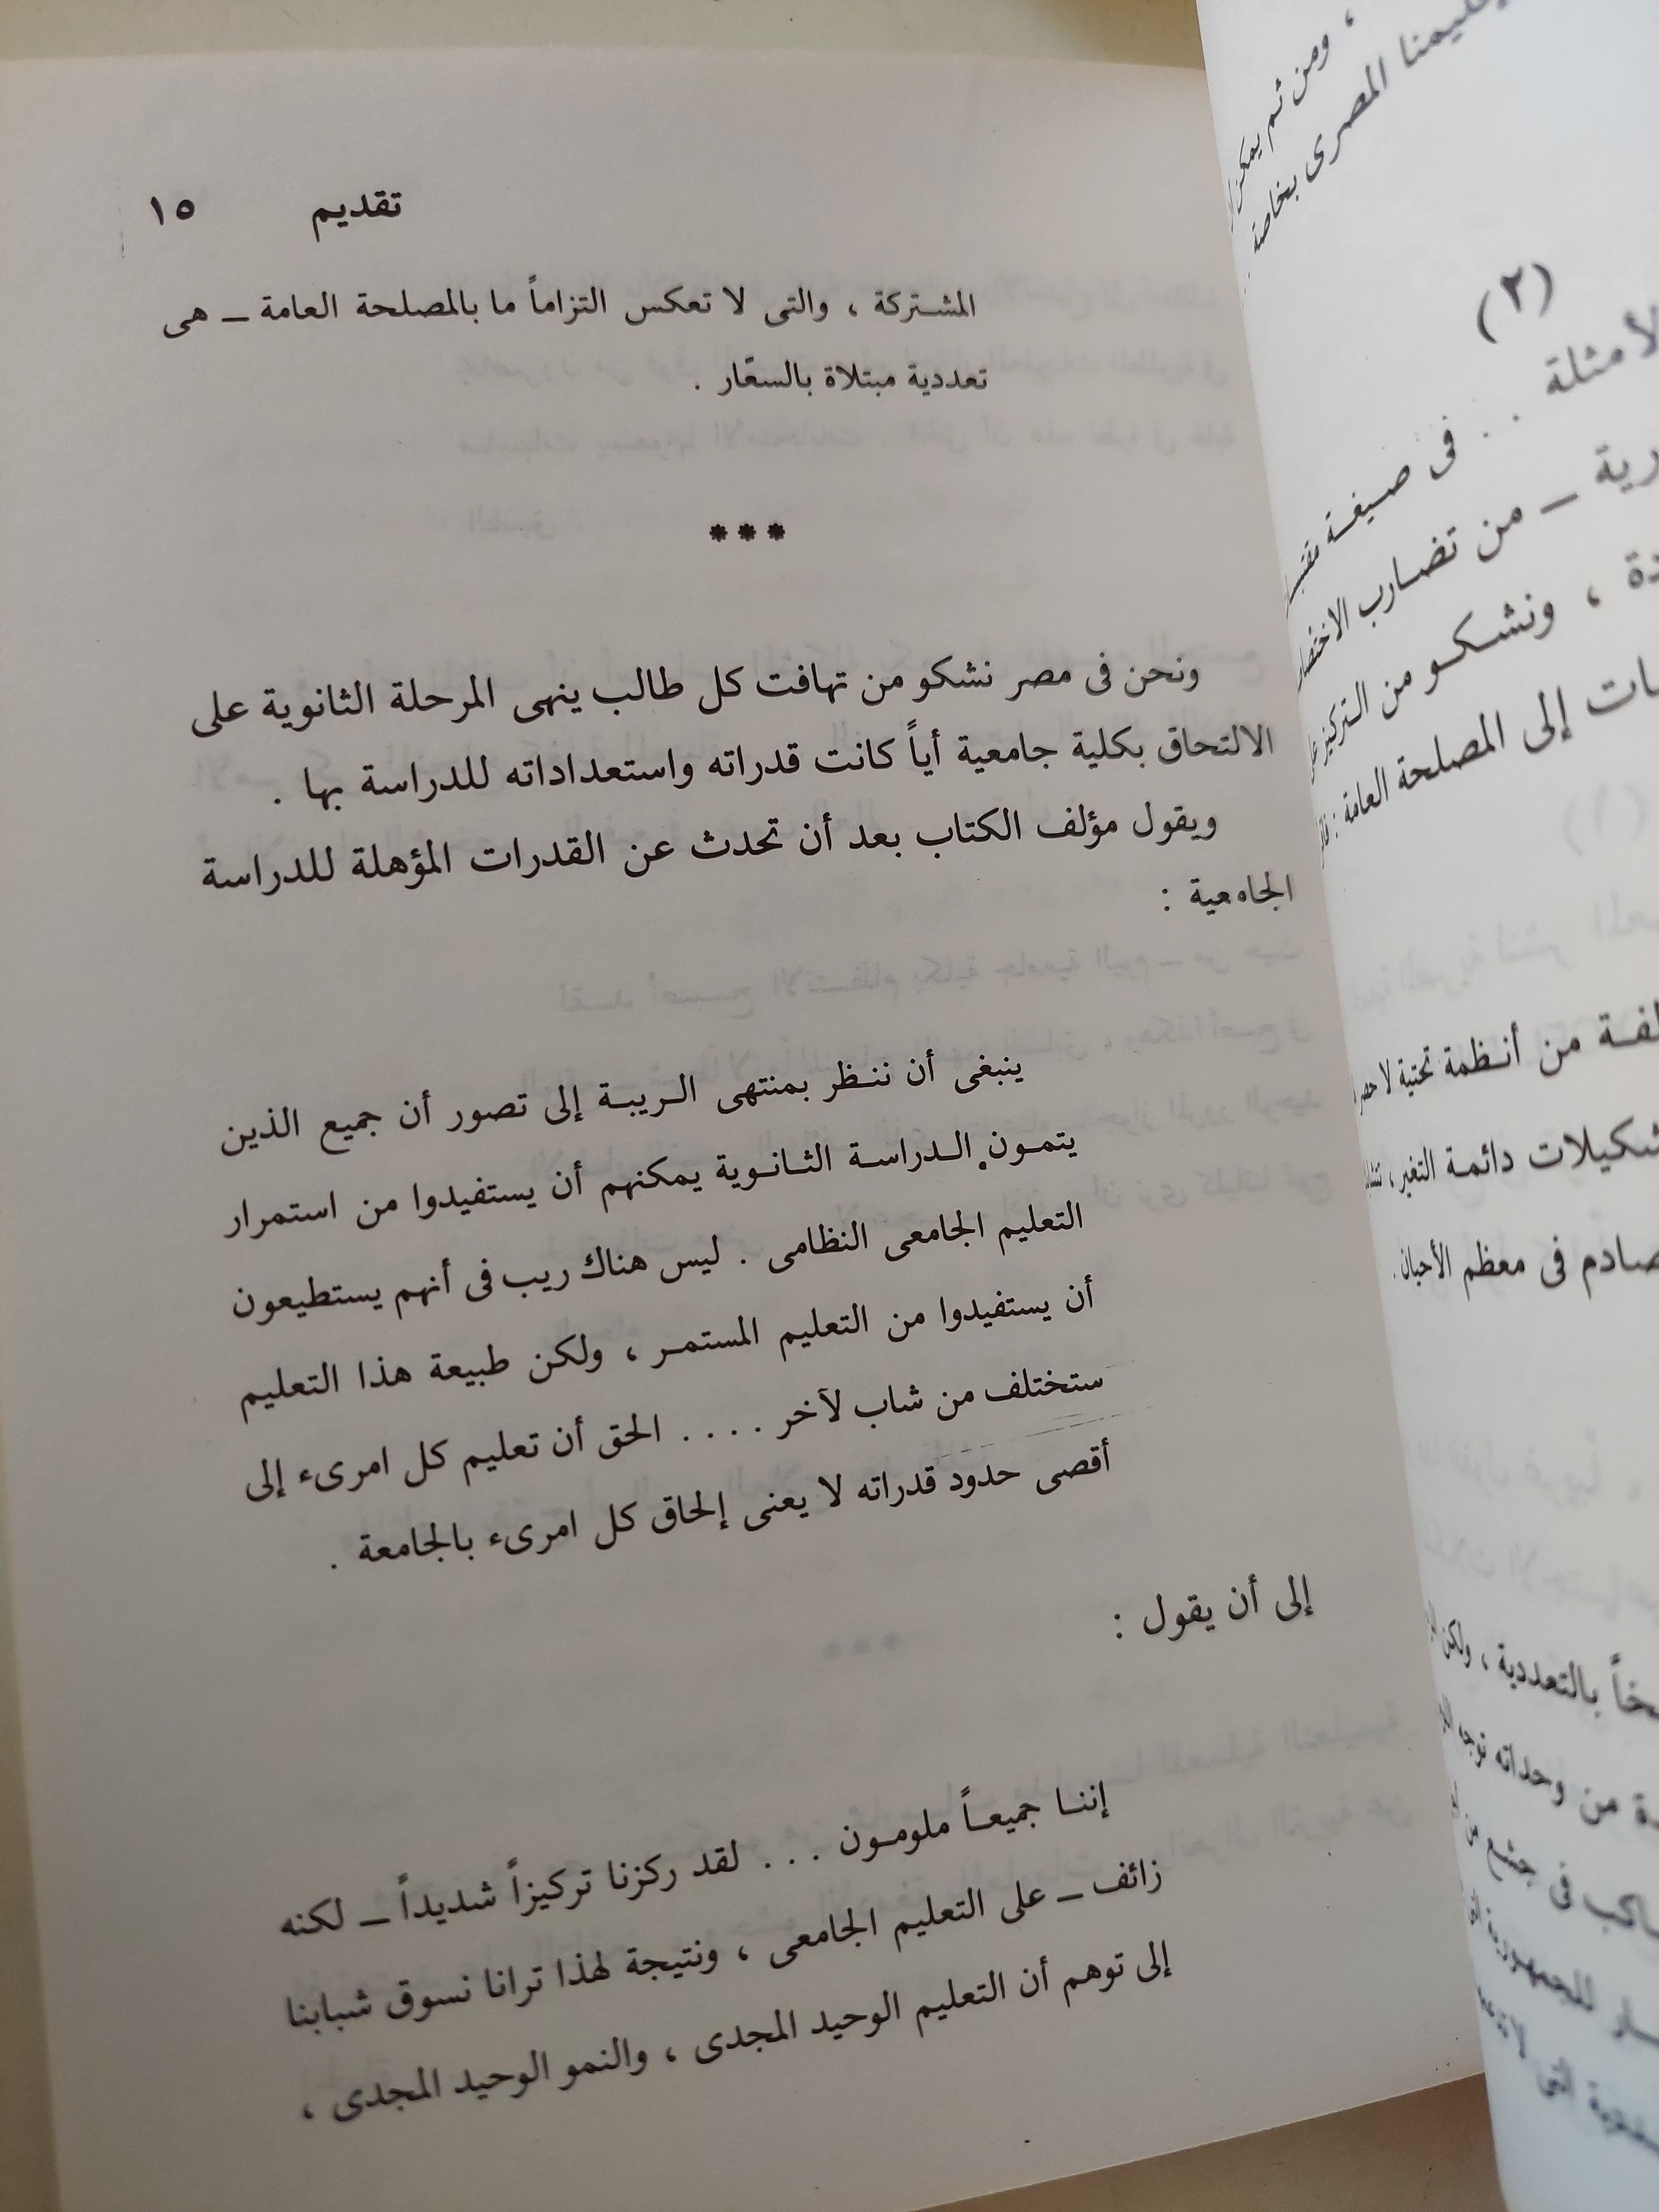 تقديم ١٥
المشتركة ، والتى لا تعكس التزاماً ما بالمصلحة العامة ــ هى
تعددية مبتلاة بالسعّار .
***
ونحن فى مصر نشكو من تهافت كل طالب ينهى المرحلة الثانوية على
الالتحاق بكلية جامعية أياً كانت قدراته واستعداداته للدراسة بها .
ويقول مؤلف الكتاب بعد أن تحدث عن القدرات المؤهلة للدراسة
الجامعية :
ينبغى أن ننظر بمنتهى الريبة إلى تصور أن جميع الذين
يتمون الدراسة الثانوية يمكنهم أن يستفيدوا من استمرار
التعليم الجامعى النظامى . ليس هناك ريب فى أنهم يستطيعون
أن يستفيدوا من التعليم المستمر ، ولكن طبيعة هذا التعليم
ستختلف من شاب لآخر .... الحق أن تعليم كل امرىء إلى
أقصى حدود قدراته لا يعنى إلحاق كل امرىء بالجامعة .
إلى أن يقول :
إننا جميعاً ملومون ... لقد ركزنا تركيزاً شديداً ــ لكنه
زائف ــ على التعليم الجامعى ، ونتيجة لهذا ترانا نسوق شبابنا
إلى توهم أن التعليم الوحيد المجدى ، والنمو الوحيد المجدى ،
، ومن ثم يمكن
المصرى بخاصة
(٢)
الأمثلة .. فى صيغة
ــ من تضارب
، ونشكو من التركيز
إلى المصلحة العامة :
من أنظمة تحتية لا
دائمة التغير ،
فى معظم الأحيان .
بالتعددية ، ولكن
من وحداته توجه
فى جشع من